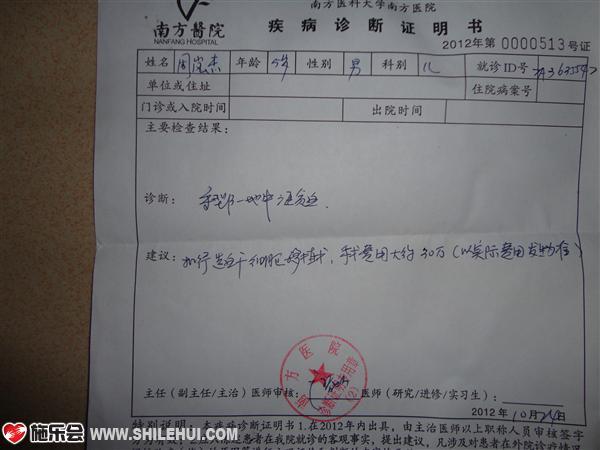 南方医科大学南方医院
南方醫院
NANFANG HOSPITAL
疾病诊断证明书
2012年第0000513号证
姓名 周嵐杰 年龄 5岁 性别 男 科别 儿 就诊ID号
单位或住址 住院病案号
门诊或入院时间 出院时间
主要检查结果:
诊断: 重型β-地中海贫血
建议: 如行造血干细胞移植术,手术费用大约30万(以实际费用发票为准)
南方医院
主任(副主任/主治)医师审核: 医师(研究/进修/实习生):
2012年10月26日
特别说明:本疾病诊断证明书1.在2012年内出具,由主治医师以上职称人员审核签字
是患者在我院就诊的客观事实,提出建议,凡涉及对患者在外院诊疗情况
施乐会
WWW.SHILEHUI.COM
施乐会
WWW.SHILEHUI.COM